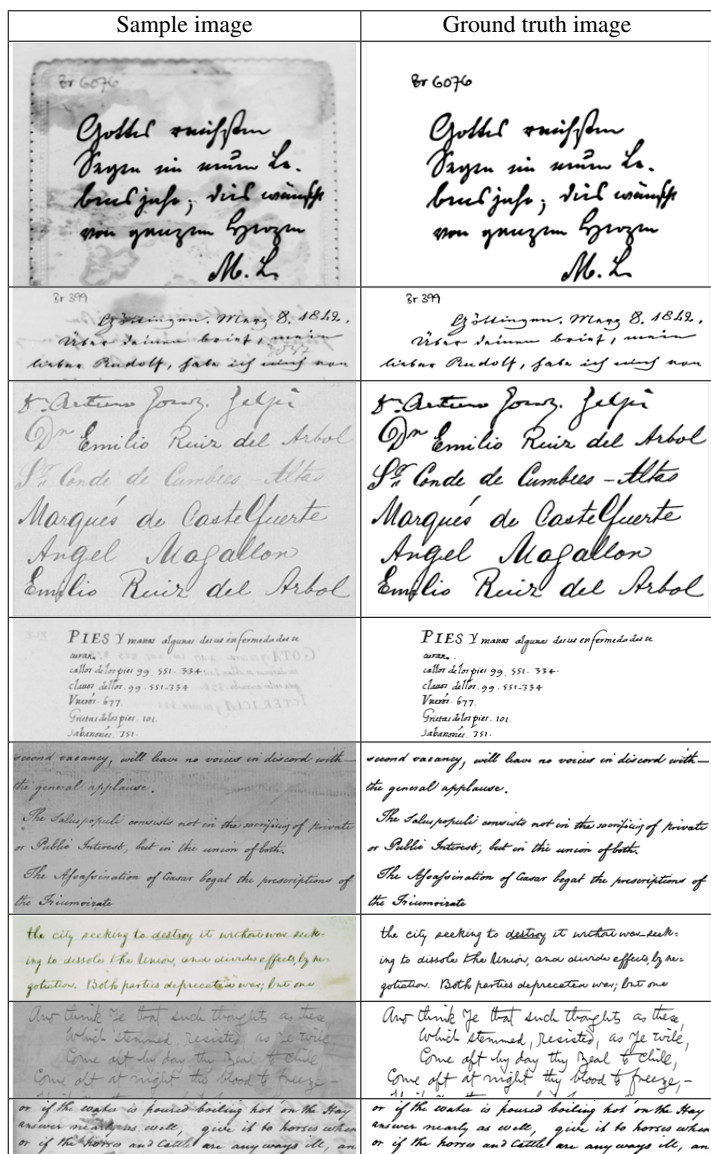 Sample image
Ground truth image
Br 6076
Gottes reichsten
Segen im neuen Le-
bensjahr, dies wünscht
von ganzem Herzen
M. L.
Br 6076
Gottes reichsten
Segen im neuen Le-
bensjahr, dies wünscht
von ganzem Herzen
M. L.
Br 399
Göttingen. März 8. 1842.
Über deinen brief, mein
lieber Rudolf, habe ich mich von
Br 399
Göttingen. März 8. 1842.
Über deinen brief, mein
lieber Rudolf, habe ich mich von
Dr. Arturo
Dn Emilio Ruiz del Arbol
Sr. Conde de Cumbres-Altas
Marqués de Castelfuerte
Angel Magallon
Emilio Ruiz del Arbol
Dr. Arturo
Dn Emilio Ruiz del Arbol
Sr. Conde de Cumbres-Altas
Marqués de Castelfuerte
Angel Magallon
Emilio Ruiz del Arbol
PIES Y manos algunas de sus enfermedades se
curan.
callos de los pies 99. 551-334.
clauos dellos. 99. 551-334
677.
Grietas de los pies. 101.
sabañones. 351.
PIES Y manos algunas de sus enfermedades se
curan.
callos de los pies 99. 551-334.
clauos dellos. 99. 551-334
677.
Grietas de los pies. 101.
sabañones. 351.
second vacancy, will leave no voices in discord with—
the general applause.
The Salus populi consists not in the sacrificing of private
or Public Interest, but in the union of both.
The Assassination of Cæsar begat the proscriptions of
the Triumvirate
second vacancy, will leave no voices in discord with—
the general applause.
The Salus populi consists not in the sacrificing of private
or Public Interest, but in the union of both.
The Assassination of Cæsar begat the proscriptions of
the Triumvirate
the city seeking to destroy it without war—seek-
ing to dissolve the Union, and divide effects, by ne-
gotiation. Both parties deprecated war; but one
the city seeking to destroy it without war—seek-
ing to dissolve the Union, and divide effects, by ne-
gotiation. Both parties deprecated war; but one
And think Ye that such thoughts as these,
Which stemmed, resisted, as Ye will,
Come oft by day thy Zeal to chill,
Come oft at night thy blood to freeze,—
And think Ye that such thoughts as these,
Which stemmed, resisted, as Ye will,
Come oft by day thy Zeal to chill,
Come oft at night thy blood to freeze,—
or if the water is poured boiling hot on the Hay
answer nearly as well, give it to horses when
or if the horses and Cattle are any ways ill, an
or if the water is poured boiling hot on the Hay
answer nearly as well, give it to horses when
or if the horses and Cattle are any ways ill, an